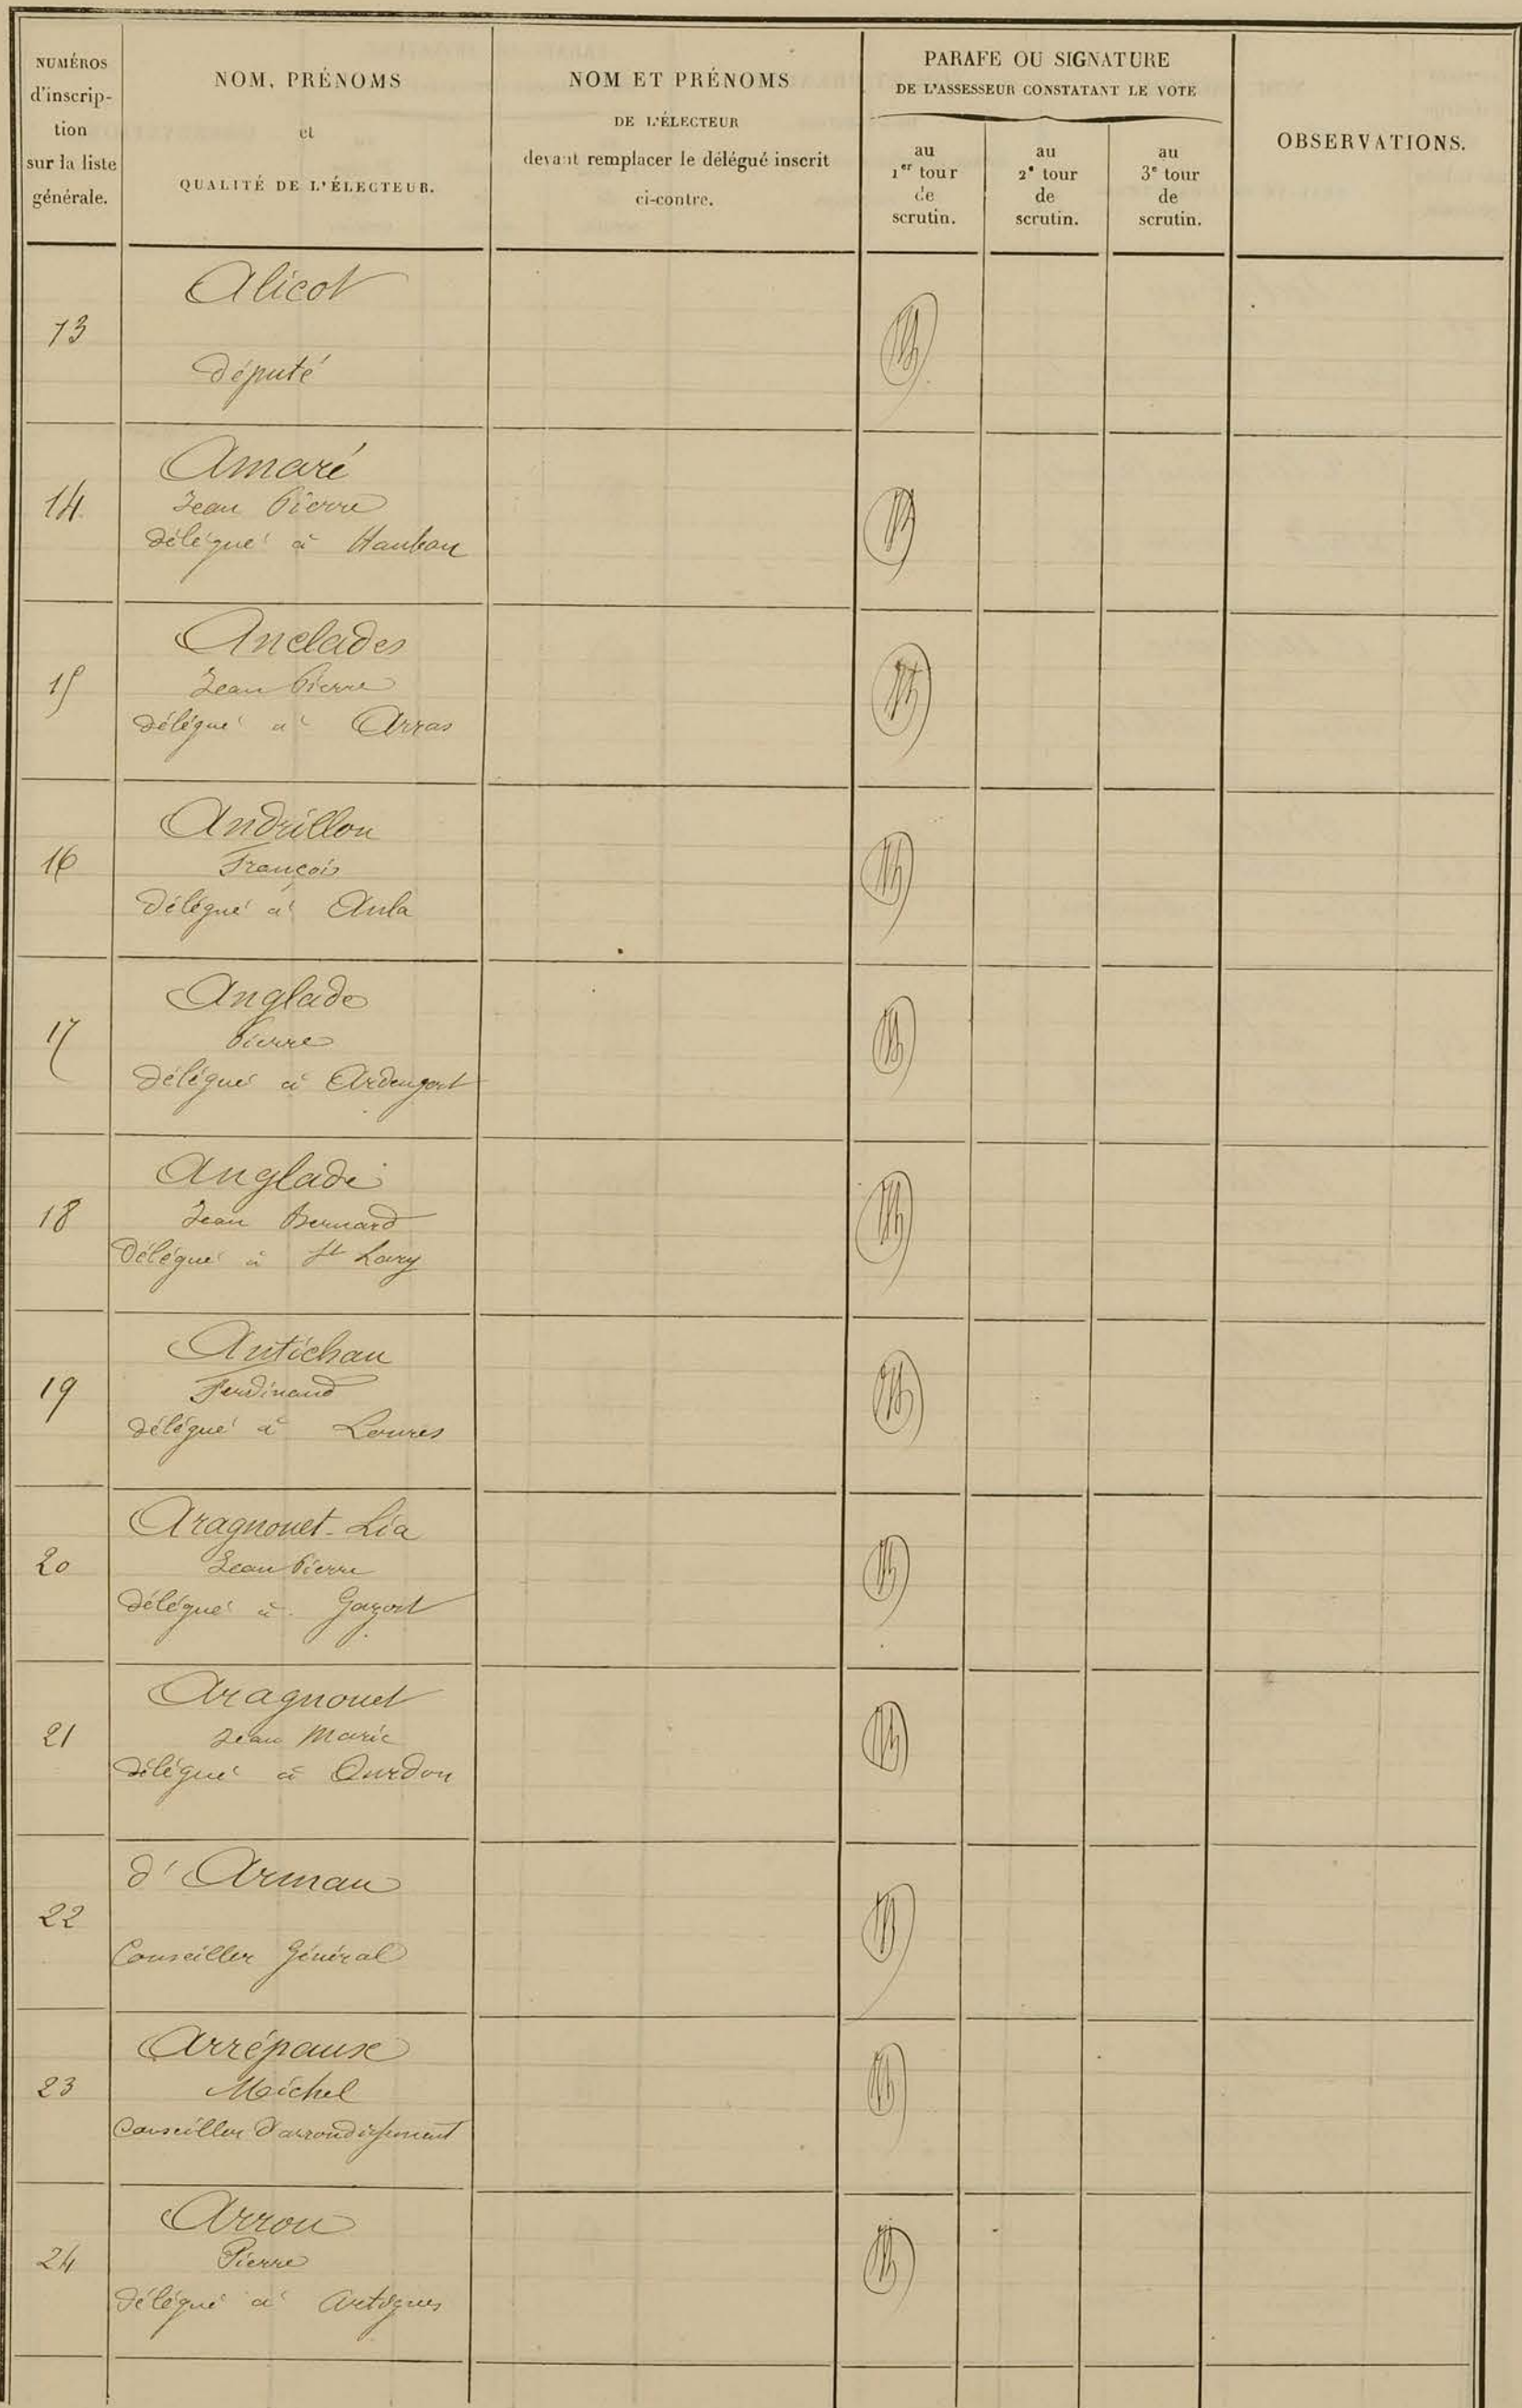 NUMÉROS
d'inscrip-
tion
sur la liste
générale.
NOM, PRÉNOMS
et
QUALITÉ DE L'ÉLECTEUR.
NOM ET PRÉNOMS
DE L'ÉLECTEUR
devant remplacer le délégué inscrit
ci-contre.
PARAFE OU SIGNATURE
DE L'ASSESSEUR CONSTATANT LE VOTE
au
1er tour
de
scrutin.
au
2e tour
de
scrutin.
au
3e tour
de
scrutin.
OBSERVATIONS.
13
Alicot
député
14
Amaré
Jean Pierre
délégué à Hauban
15
Anclades
Jean Pierre
délégué à Arras
16
Andrillon
François
Délégué à Aula
17
Anglade
Pierre
Délégué à Ardengost
18
Anglade
Jean Bernard
Délégué à St Lary
19
Antichan
Ferdinand
délégué à Loures
20
Aragnouet-Lia
Jean Pierre
délégué à Gazost
21
Aragnouet
Jean Marie
délégué à Ourdon
22
d'Arman
Conseiller Général
23
Arrépaux
Michel
Conseiller d'arrondissement
24
Arrou
Pierre
délégué à Artigues